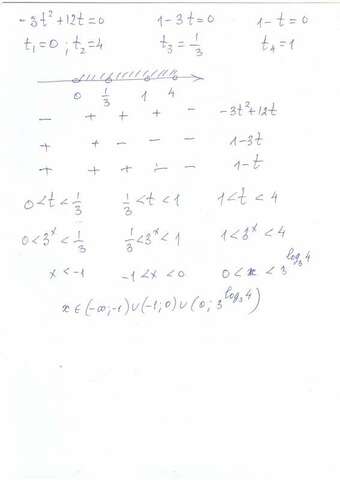 -3t²+12t=0 1-3t=0 1-t=0
t₁=0 ; t₂=4 t₃=1/3 t₄=1
0 1/3 1 4
- + + + - -3t²+12t
+ + - - - 1-3t
+ + + - - 1-t
0<t<1/3 1/3<t<1 1<t<4
0<3ˣ<1/3 1/3<3ˣ<1 1<3ˣ<4
x<-1 -1<x<0 0<x<3^log₃4
x∈(-∞;-1)∪(-1;0)∪(0; 3^log₃4)